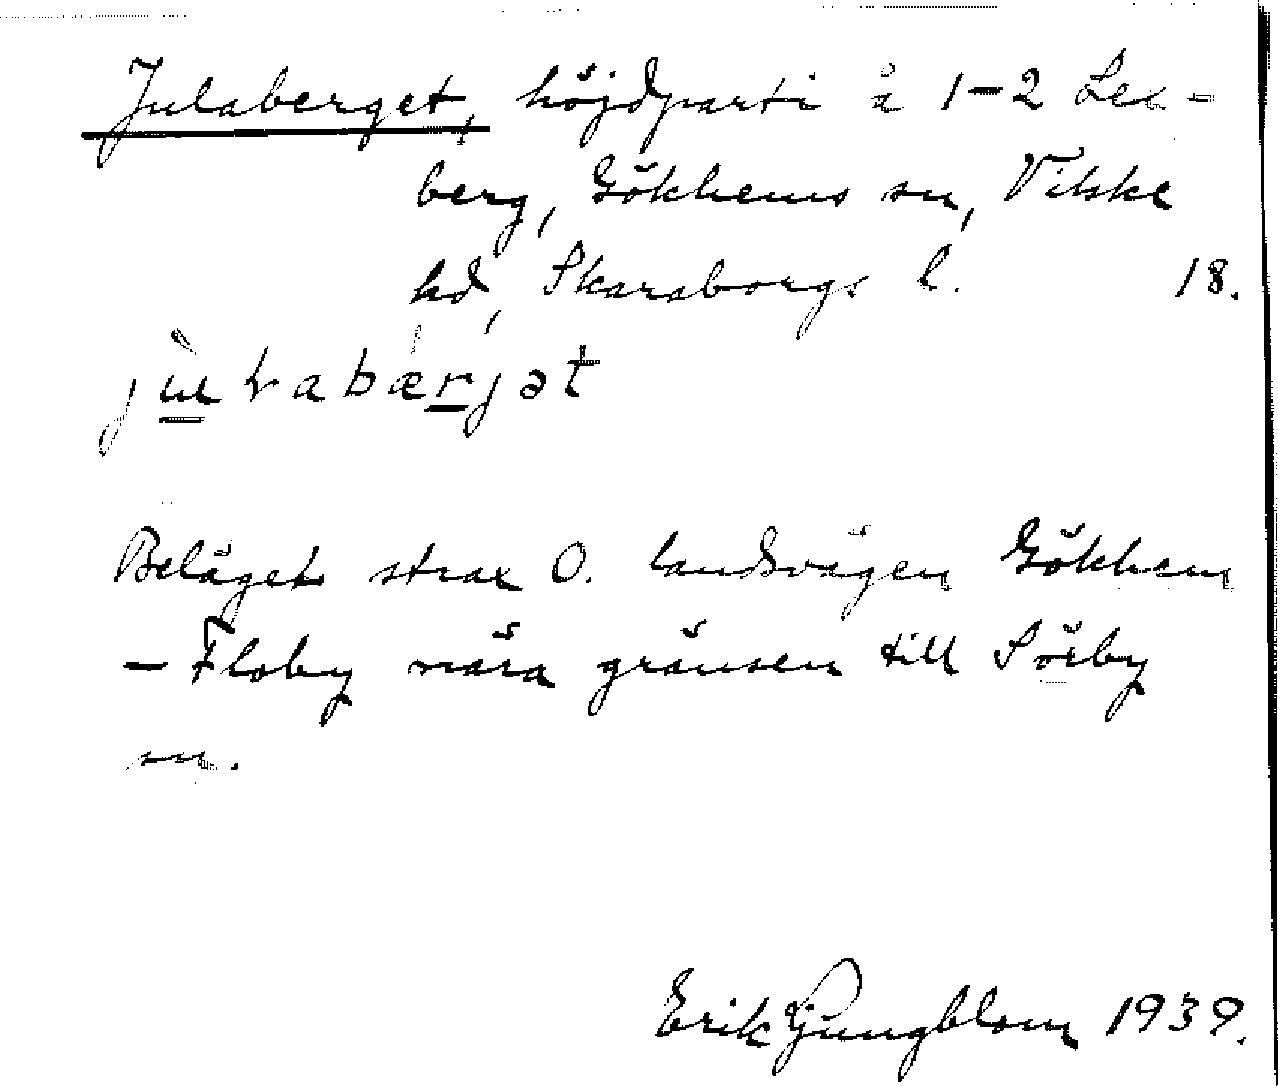 Julaberget, höjdparti å 1-2 Lex-
berg, Gökhems sn, Vilske
hd, Skaraborgs l. 18.
Beläget strax O. landsvägen Gökhem
- Floby nära gränsen till Sörby
sn.
Erik Ljungblom 1939.